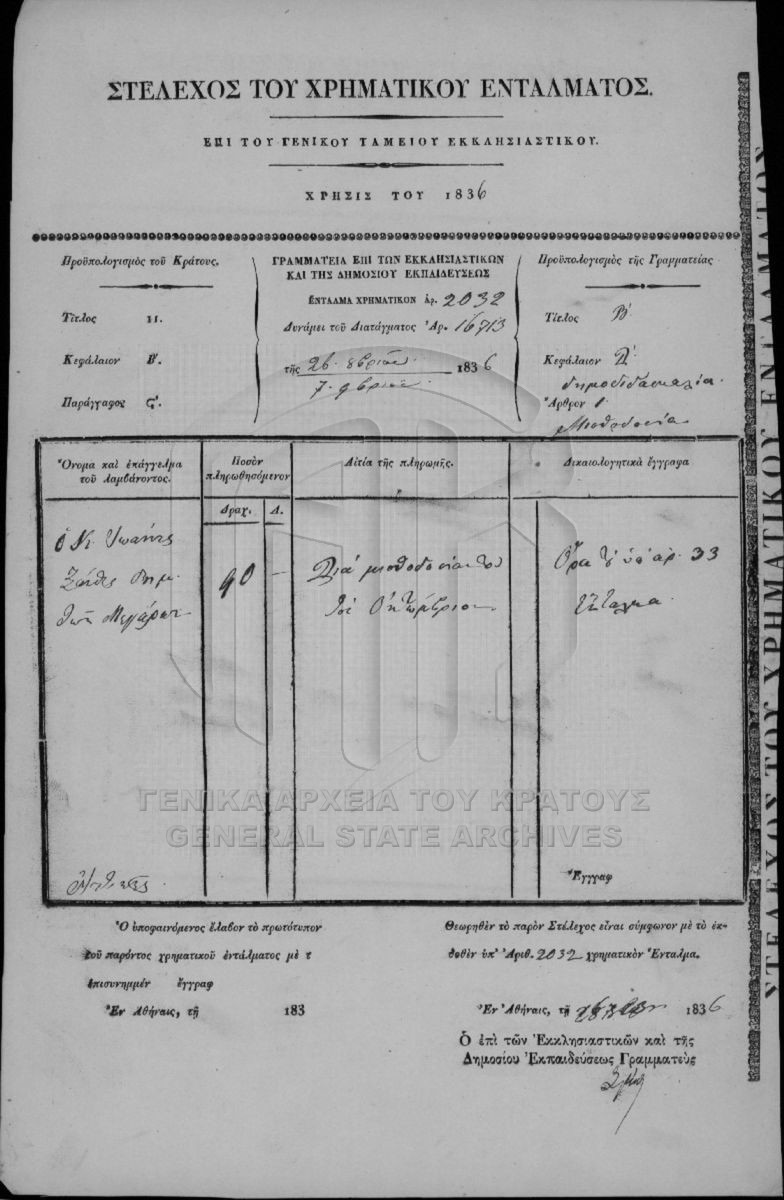 ΣΤΕΛΕΧΟΣ ΤΟΥ ΧΡΗΜΑΤΙΚΟΥ ΕΝΤΑΛΜΑΤΟΣ.
ΕΠΙ ΤΟΥ ΓΕΝΙΚΟΥ ΤΑΜΕΙΟΥ ΕΚΚΛΗΣΙΑΣΤΙΚΟΥ.
ΧΡΗΣΙΣ ΤΟΥ 1836
Προϋπολογισμὸς τοῦ Κράτους.
Τίτλος ΙΙ.
Κεφάλαιον Β'.
Παράγραφος Ϛ'.
ΓΡΑΜΜΑΤΕΙΑ ΕΠΙ ΤΩΝ ΕΚΚΛΗΣΙΑΣΤΙΚΩΝ
ΚΑΙ ΤΗΣ ΔΗΜΟΣΙΟΥ ΕΚΠΑΙΔΕΥΣΕΩΣ
ΕΝΤΑΛΜΑ ΧΡΗΜΑΤΙΚΟΝ ἀρ. 2032
Δυνάμει τοῦ Διατάγματος Ἀρ. 16713
τῆς 26 8βρίου 1836
7 9βρίου
Προϋπολογισμὸς τῆς Γραμματείας
Τίτλος Β'
Κεφάλαιον Δ'.
δημοδιδασκαλία.
Ἄρθρον 1
Μισθοδοσία
Ὄνομα καὶ ἐπάγγελμα
τοῦ λαμβάνοντος.
Ποσὸν
πληρωθησόμενον
Δραχ. Λ.
Αἰτία τῆς πληρωμῆς.
Δικαιολογητικὰ ἔγγραφα
ὁ Κ. Ἰωάννης
Μεγάρων
90 —
Διὰ μισθοδοσίαν του
Ὀκτώμβριον
Ὅρα τὸ ὑπ' ἀρ. 33
ἔνταλμα
Ἔγγραφ
Ὁ ὑποφαινόμενος ἔλαβον τὸ πρωτότυπον
τοῦ παρόντος χρηματικοῦ ἐντάλματος μὲ τ
ἐπισυνημμέν ἔγγραφ
Ἐν Ἀθήναις, τῇ 183
Θεωρηθὲν τὸ παρὸν Στέλεχος εἶναι σύμφωνον μὲ τὸ ἐκ-
δοθὲν ὑπ' Ἀριθ. 2032 χρηματικὸν Ἔνταλμα.
Ἐν Ἀθήναις, τῇ 1836
Ὁ ἐπὶ τῶν Ἐκκλησιαστικῶν καὶ τῆς
Δημοσίου Ἐκπαιδεύσεως Γραμματεὺς
ΓΕΝΙΚΑ ΑΡΧΕΙΑ ΤΟΥ ΚΡΑΤΟΥΣ
GENERAL STATE ARCHIVES
ΣΤΕΛΕΧΟΣ ΤΟΥ ΧΡΗΜΑΤΙΚΟΥ ΕΝΤΑΛΜΑΤΟΣ